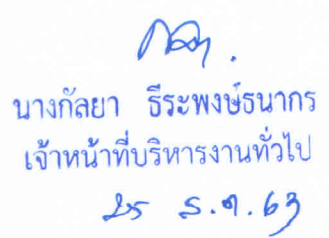 นางกัลยา ธีระพงษ์ธนากร
เจ้าหน้าที่บริหารงานทั่วไป
25 ธ.ค. 63